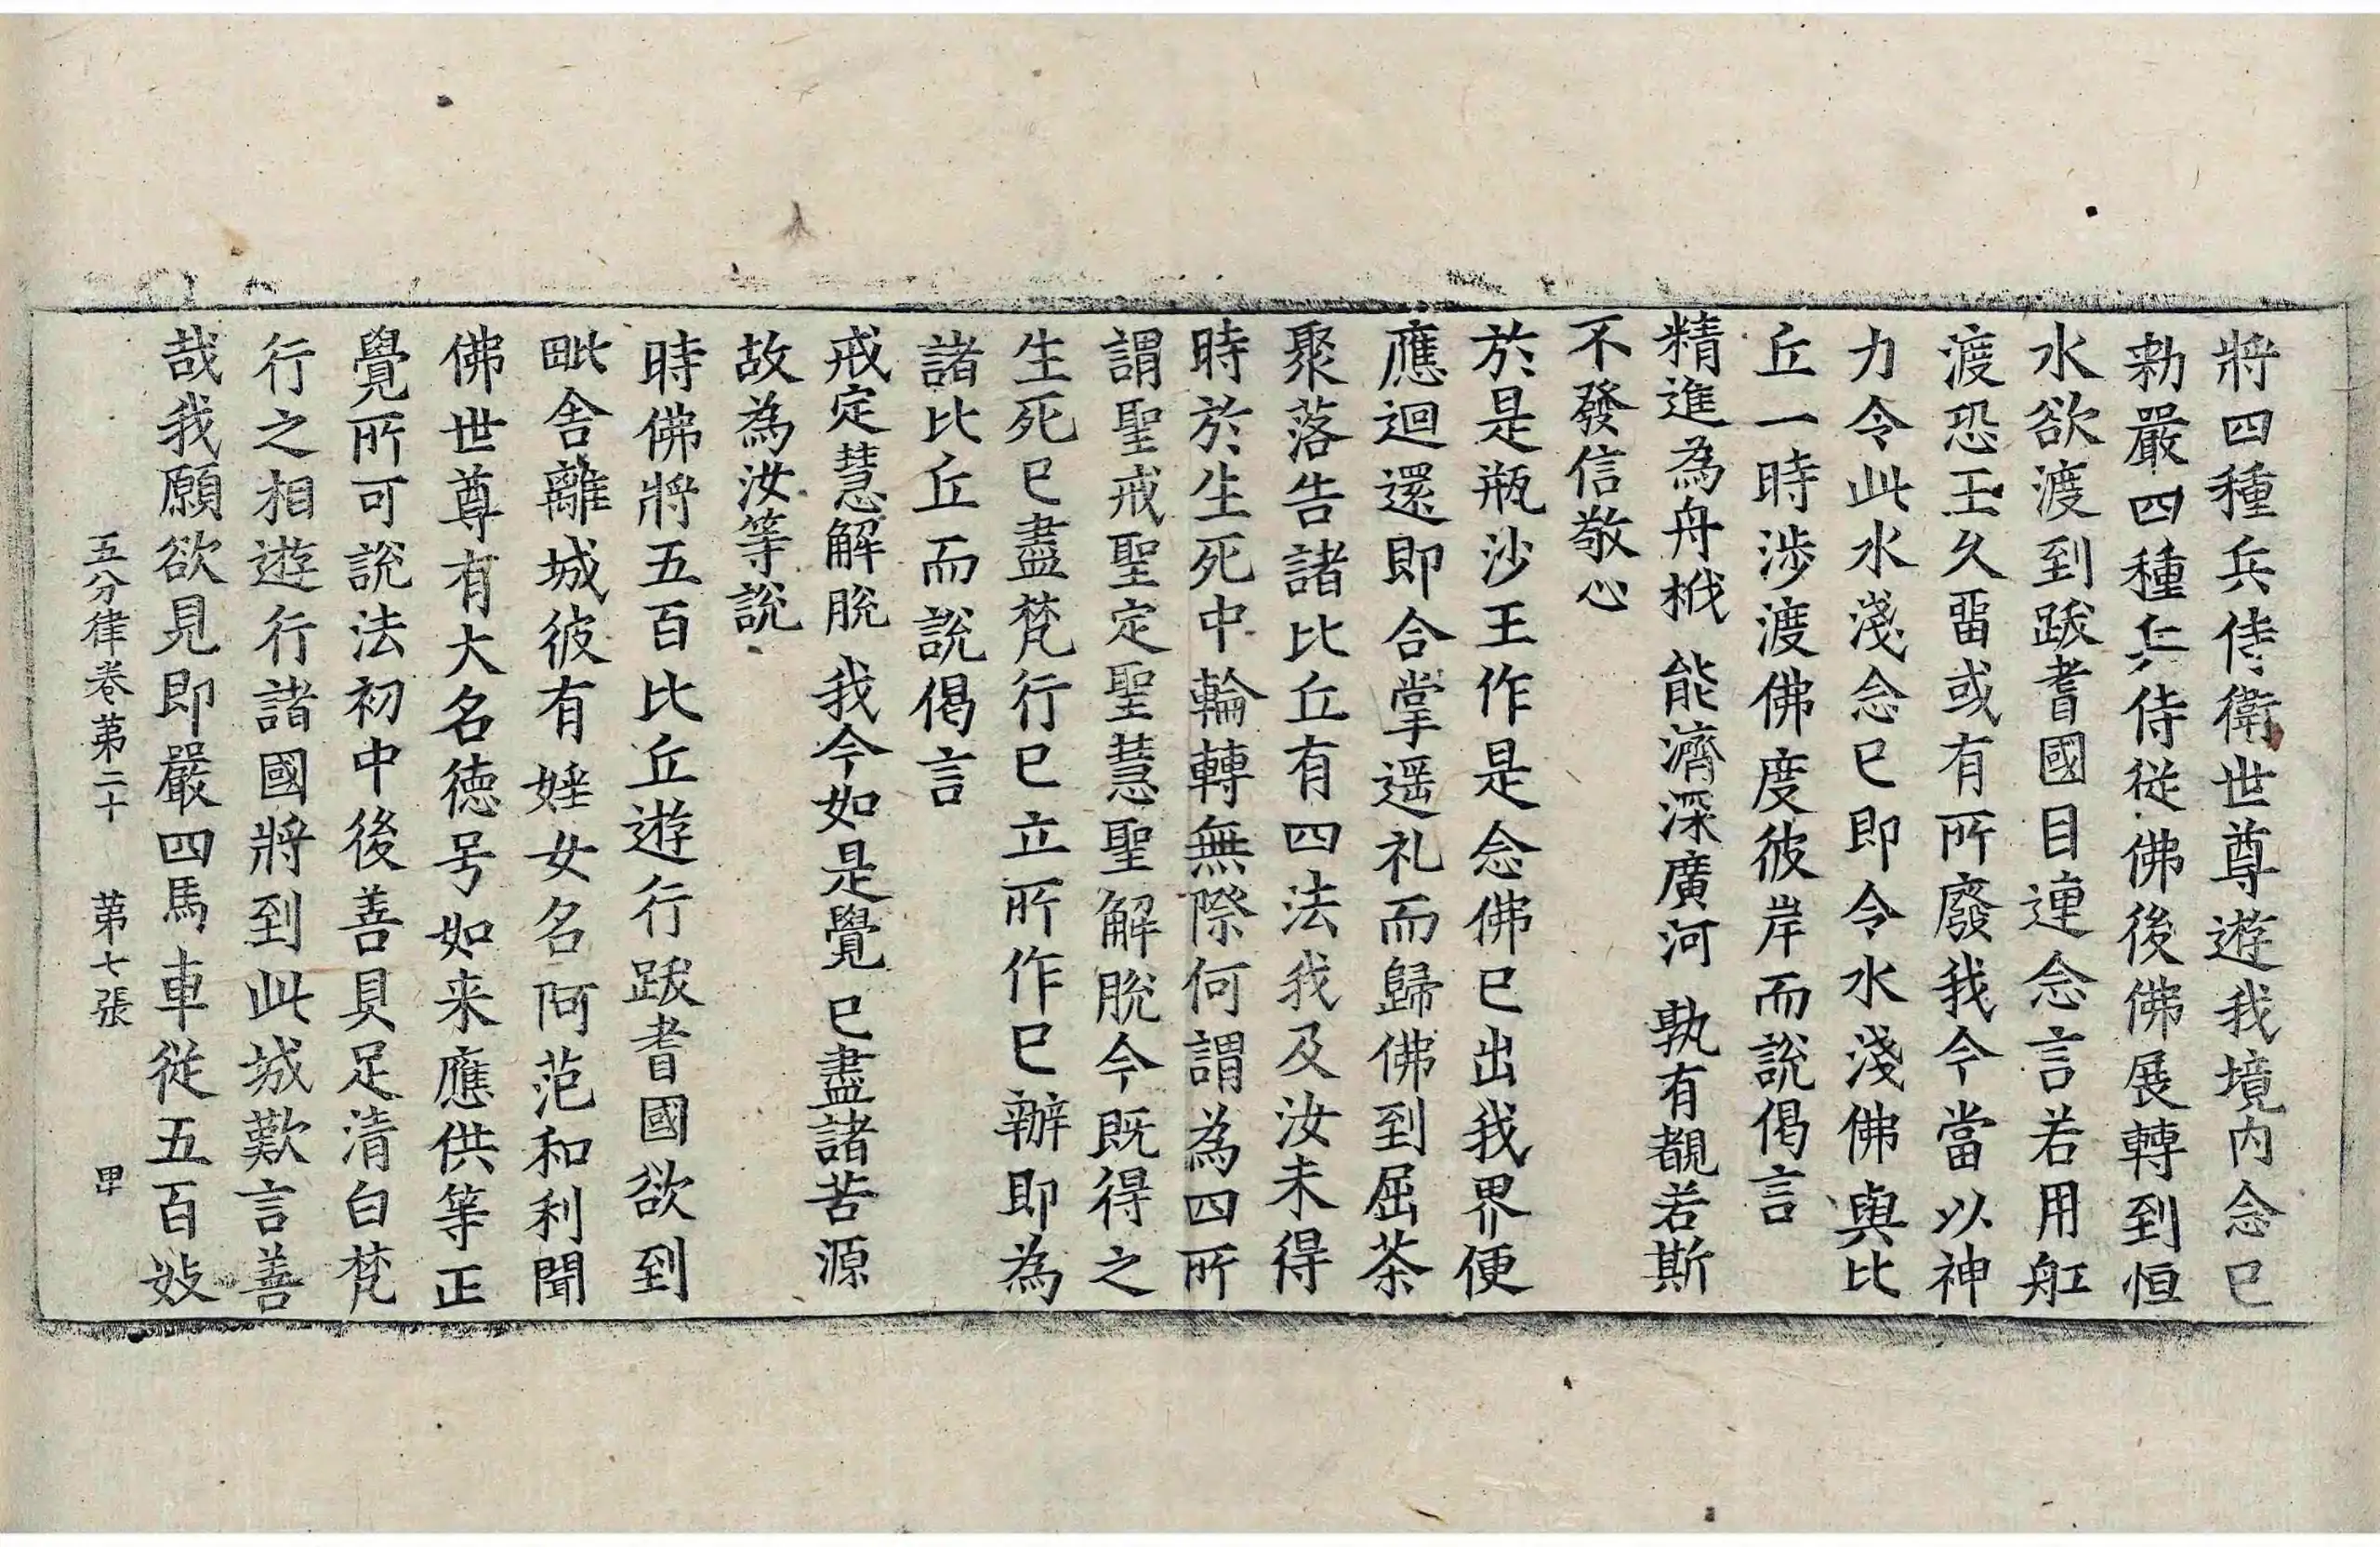 將四種兵侍衛世尊遊我境內念已
勑嚴四種兵侍從佛後佛展轉到恒
水欲渡到跋耆國目連念言若用舡
渡恐王久畱或有所廢我今當以神
力令此水淺念已即令水淺佛與比
丘一時涉渡佛度彼岸而說偈言
精進為舟栰　能濟深廣河　孰有覩若斯
不發信敬心
於是瓶沙王作是念佛已出我界便
應迴還即合掌遥礼而歸佛到屈茶
聚落告諸比丘有四法我及汝未得
時於生死中輪轉無際何謂為四所
謂聖戒聖定聖慧聖解脫今既得之
生死已盡梵行已立所作已辦即為
諸比丘而說偈言
戒定慧解脫　我今如是覺　已盡諸苦源
故為汝等說
時佛將五百比丘遊行跋耆國欲到
毗舍離城彼有婬女名阿范和利聞
佛世尊有大名德号如来應供等正
覺所可說法初中後善具足清白梵
行之相遊行諸國將到此城歎言善
哉我願欲見即嚴四馬車從五百妓
五分律卷第二十　第七張　甲